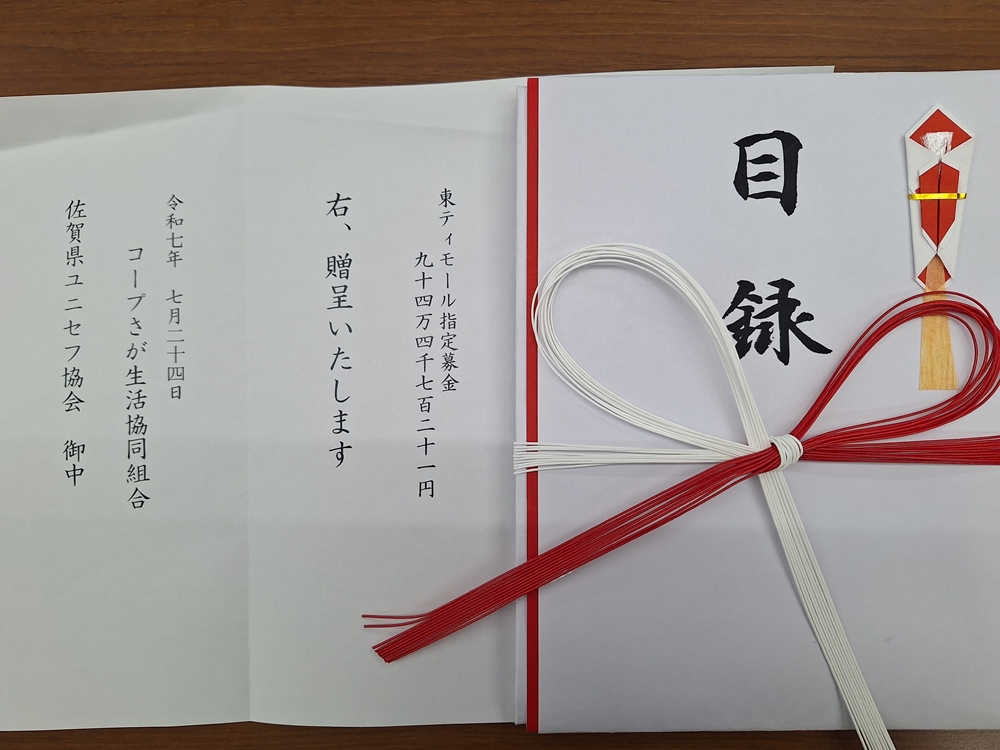 目録
東ティモール指定募金
九十四万四千七百二十一円
右、贈呈いたします
令和七年 七月二十四日
コープさが生活協同組合
佐賀県ユニセフ協会 御中